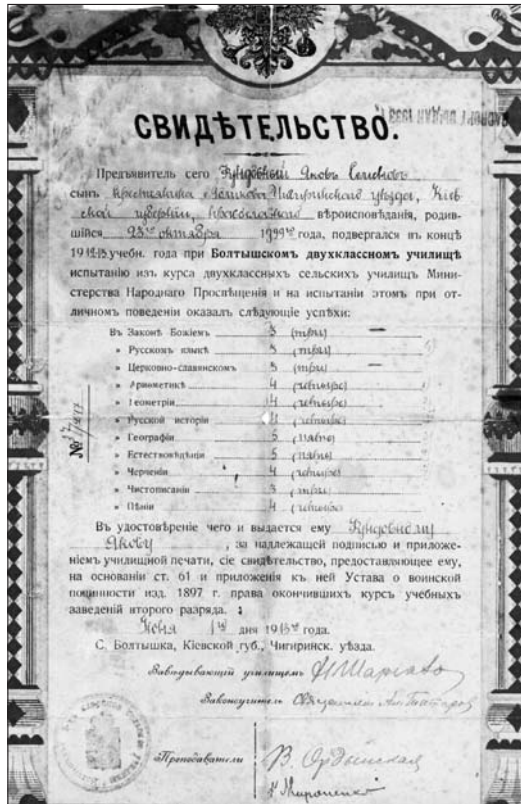 СВИДѢТЕЛЬСТВО.
Предъявитель сего Кундовный Яковъ
сынъ крестьянина Чигиринскаго уѣзда, Кіев
ской губерніи, православнаго вѣроисповѣданія, родив-
шійся 23го октября года, подвергался въ концѣ
учебн. года при Болтышскомъ двухклассномъ училищѣ
испытанію изъ курса двухклассныхъ сельскихъ училищъ Мини-
стерства Народнаго Просвѣщенія и на испытаніи этомъ при от-
личномъ поведеніи оказалъ слѣдующіе успѣхи:
Въ Законѣ Божіемъ 3 (три) —
» Русскомъ языкѣ 3 (три)
» Церковно-славянскомъ 3 (три) —
» Ариѳметикѣ 4 (четыре)
» Геометріи 4 (четыре)
» Русской исторіи 4 (четыре)
» Географіи 5 (пять)
» Естествовѣдѣніи 5 (пять)
» Черченіи 4 (четыре)
» Чистописаніи 3 (три)
» Пѣніи 4 (четыре)
№
Въ удостовѣреніе чего и выдается ему Кундовному
Якову, за надлежащей подписью и приложе-
ніемъ училищной печати, сіе свидѣтельство, предоставляющее ему,
на основаніи ст. 61 и приложенія къ ней Устава о воинской
повинности изд. 1897 г. права окончившихъ курсъ учебныхъ
заведеній второго разряда.
дня 1913 года.
С. Болтышка, Кіевской губ., Чигиринск. уѣзда.
Завѣдывающій училищемъ
Законоучитель Священникъ
Преподаватели
В. Ордынская
Мироненко